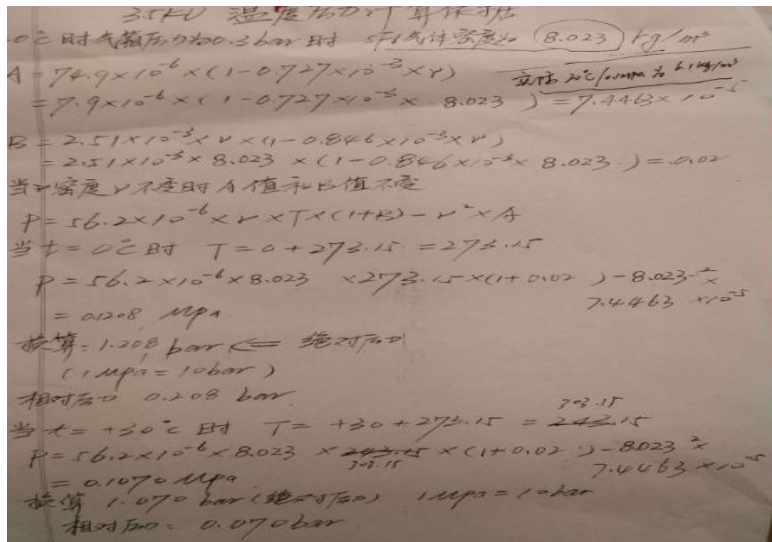 35kV 温度压力计算依据
0℃时气箱压力为0.3bar时 SF6气体密度为 8.023 kg/m³
A=74.9×10⁻⁶×(1-0.727×10⁻³×r)
实际20℃/
=7.9×10⁻⁶×(1-0.727×10⁻³× 8.023 )=7.4463×10⁻⁵
B=2.51×10⁻³×r×(1-0.846×10⁻³×r)
=2.51×10⁻³×8.023 ×(1-0.846×10⁻³× 8.023 )=0.02
当密度r不变时A值和B值不变
P=56.2×10⁻⁶×r×T×(1+B)-r²×A
当t=0℃时 T=0+273.15 =273.15
P=56.2×10⁻⁶×8.023 ×273.15×(1+0.02 )-8.023²×
7.4463 ×10⁻⁵
=0.1208 Mpa
换算:1.208 bar ⇐ 绝对压力
(1Mpa=10bar)
相对压力 0.208 bar
303.15
当t=+30℃时 T= +30+273.15 = 243.15
P=56.2×10⁻⁶×8.023 ×243.15 ×(1+0.02 )-8.023²×
303.15
7.4463×10⁻⁵
=0.1070Mpa
换算 1.070 bar(绝对压力) 1Mpa=10bar
相对压力: 0.070bar